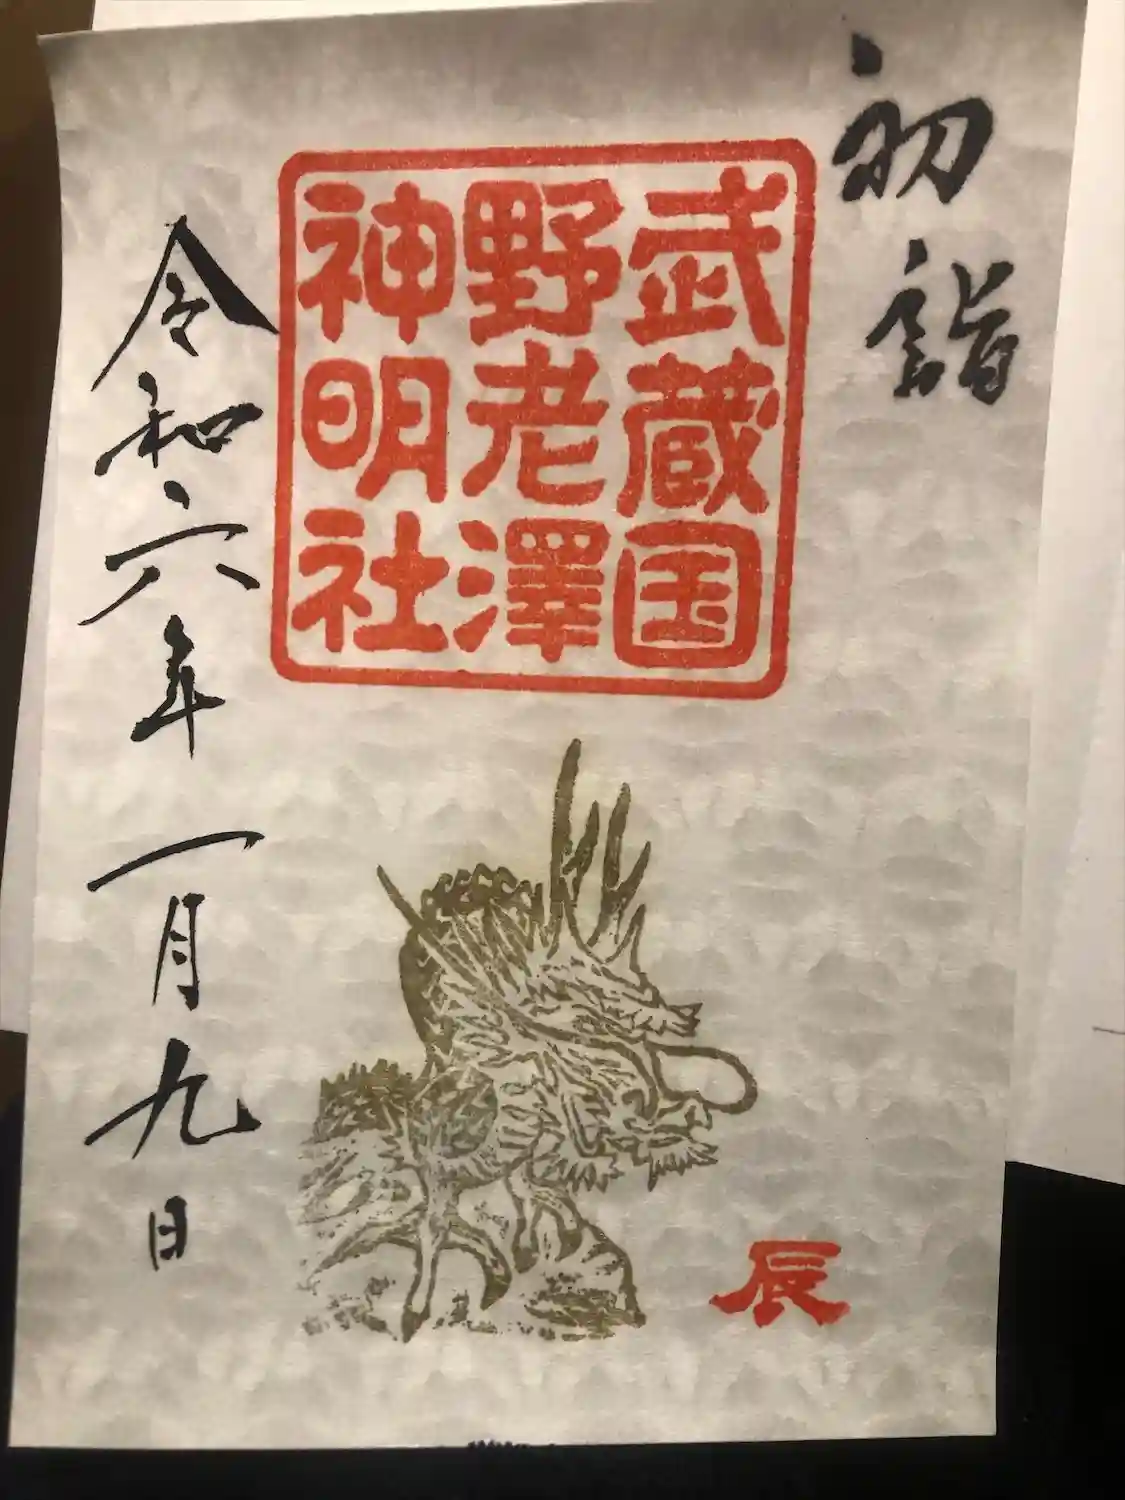 初詣
武蔵国
野老澤
神明社
辰
令和六年一月九日